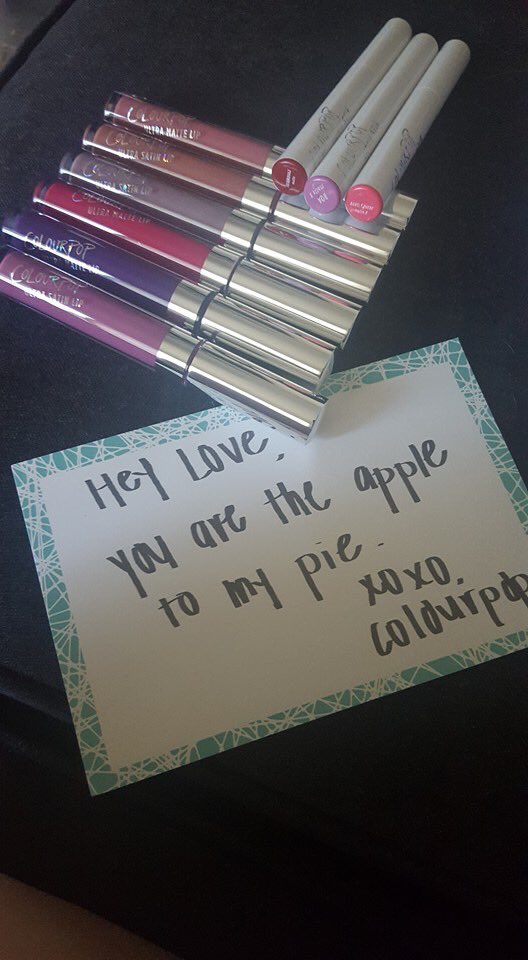 COLOURPOP
ULTRA MATTE LIP
COLOURPOP
ULTRA SATIN LIP
COLOURPOP
ULTRA SATIN LIP
COLOURPOP
ULTRA MATTE LIP
COLOURPOP
MATTE LIP
COLOURPOP
ULTRA SATIN LIP
Hey Love,
you are the apple
to my pie.
xoxo,
colourpop